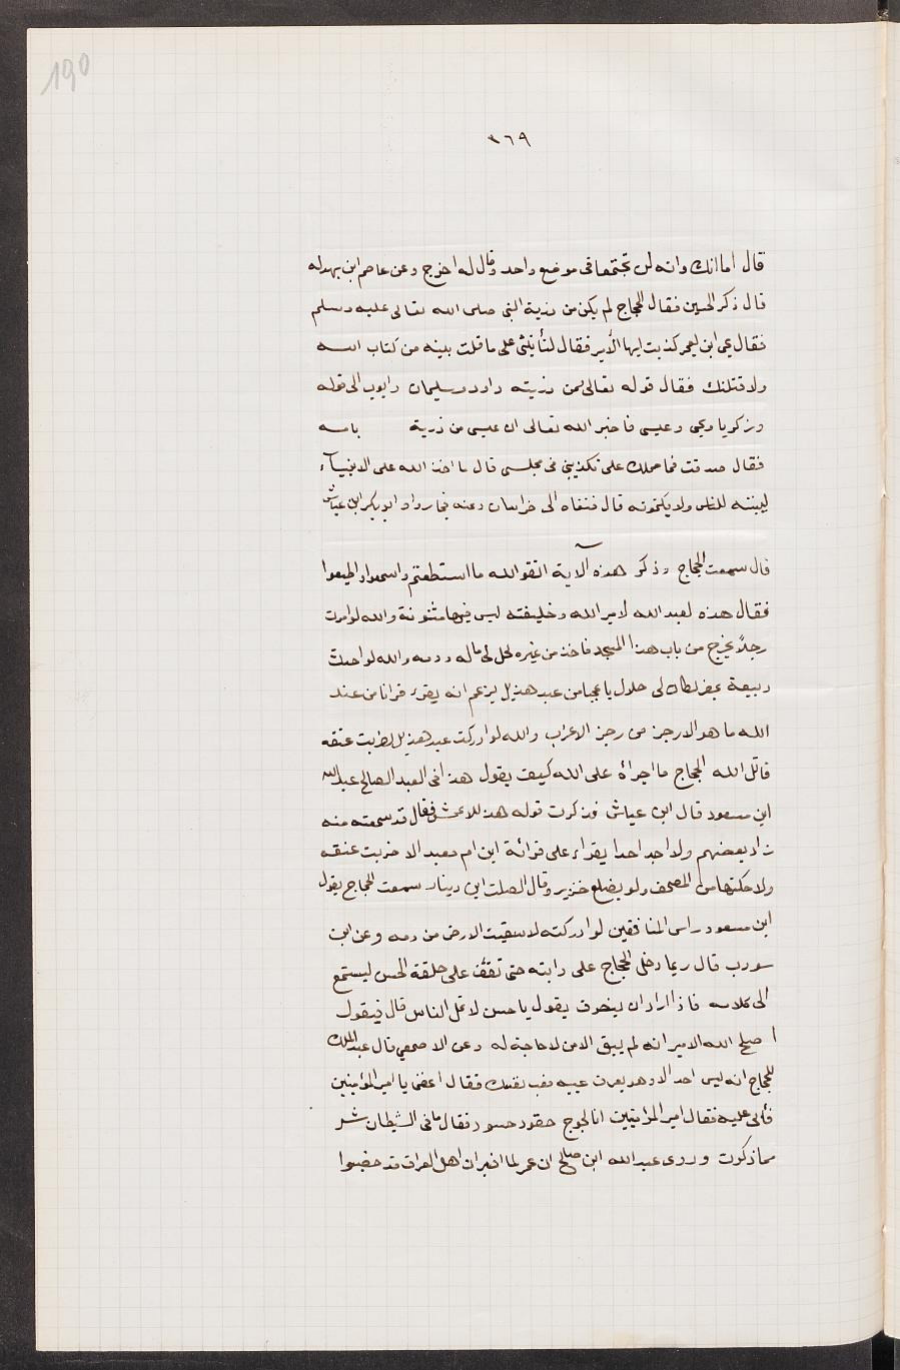 190
٣٦٩
قال اما انك وانه لن تجتمعا فى موضع واحد وقال له اخرج وعن عاصم ابن بهدله
قال ذكر الحسين فقال الحجاج لم يكن من ذرية النبى صلى الله تعالى عليه وسلم
فقال يحيى ابن يعمر كذبت ايها الأمير فقال لتأتينى على ما قلت بينه من كتاب الله
ولاقتلنك فقال قوله تعالى ومن ذريته داود وسليمان وايوب الى قوله
وزكريا ويحيى وعيسى فاخبر الله تعالى ان عيسى من ذرية بامه
فقال صدقت فما حملك على تكذيبى فى مجلسى قال ما اخذ الله على الانبيآء
ليبينه للناس ولا يكتمونه قال فنفاه الى خراسان وعنه فيما رواه ابو بكر ابن عياش
قال سمعت الحجاج وذكر هذه الآية اتقوا الله ما استطعتم واسمعوا واطيعوا
فقال هذه لعبد الله لامر الله وخليفته ليس فيها مثنونة والله لو امرت
رجلاً يخرج من باب هذا المسجد فاخذ من غيره لحل لى ماله ودمه والله لو اخذت
ربيعة بمضر لكان لى حلال يا عجبا من عبد هذيل يزعم انه يقرء قرانا من عند
الله ما هو الا رجز من رجز الاعراب والله لو ادركت عبد هذيل لضربت عنقه
قاتل الله الحجاج ما اجراه على الله كيف يقول هذا فى العبد الصالح عبد الله
ابن مسعود قال ابن عياش فذكرت قوله هذا للاعمش فقال قد سمعته منه
زاد بعضهم ولا اجد احدا يقراء على قرائة ابن ام معبد الا ضربت عنقه
ولا حكتها من المصحف ولو بضلع خنزير وقال الصلت ابن دينار سمعت الحجاج يقول
ابن مسعود راس المنافقين لو ادركته لاسقيت الارض من دمه وعن ابن
سورب قال ربما دخل الحجاج على دابته حتى تقف على حلقة الحسن ليستمع
الى كلامه فاذا اراد ان ينحرف يقول يا حسن لا تمل الناس قال فيقول
اصلح الله الامير انه لم يبق الا من لا حاجة له وعن الاصمعى قال عبد الملك
للحجاج انه ليس احد الا وهو يعرف عيبه فعب نفسك فقال اعفنى يا امير المؤمنين
فأبى عليه فقال امير المؤمنين انا لجوج حقود حسود فقال ما فى الشيطان شر
مما ذكرت وروى عبد الله ابن صالح ان عمر لما اخبر ان اهل العراق قد حصبوا